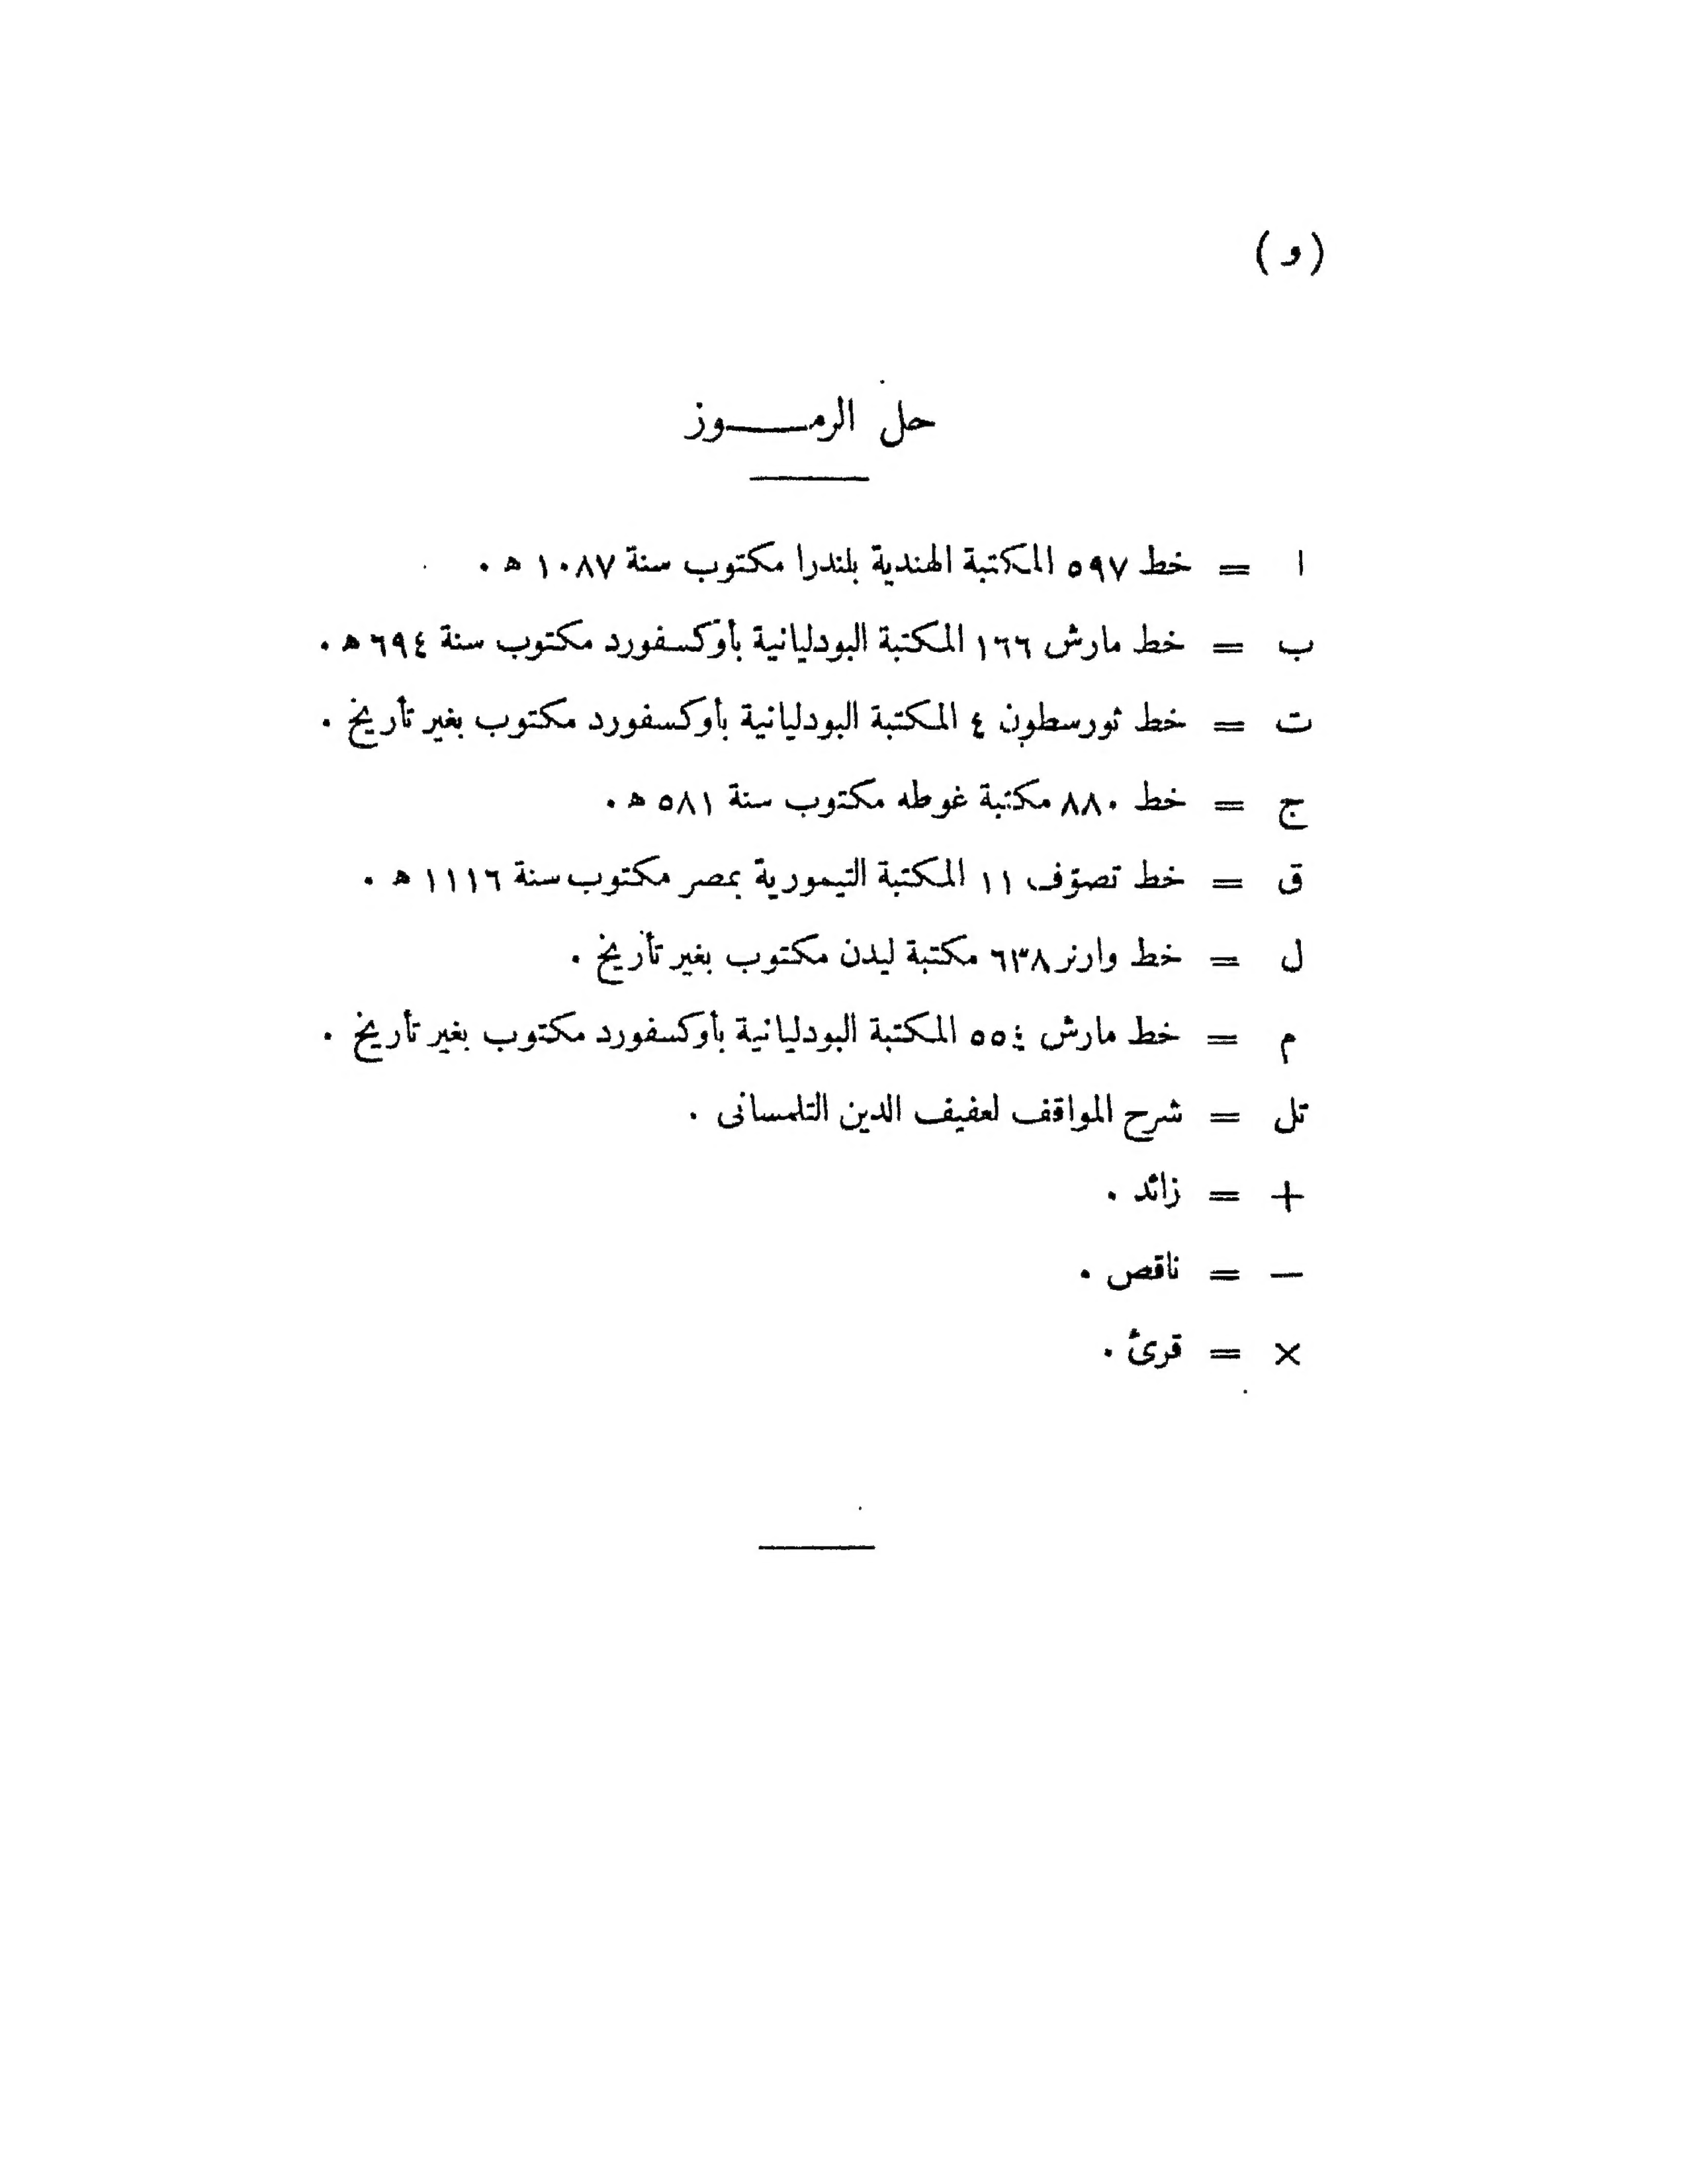 (و)
حل الرمـــــوز
ا = خط ٥٩٧ المكتبة الهندية بلندرا مكتوب سنة ١٠٨٧ ه .
ب = خط مارش ١٦٦ المكتبة البودليانية بأوكسفورد مكتوب سنة ٦٩٤ ه .
ت = خط ثورسطون ٤ المكتبة البودليانية بأوكسفورد مكتوب بغير تأريخ .
ج = خط ٨٨٠ مكتبة غوطه مكتوب سنة ٥٨١ ه .
ق = خط تصوّف ١١ المكتبة التيمورية بمصر مكتوب سنة ١١١٦ ه .
ل = خط وارنر ٦٣٨ مكتبة ليدن مكتوب بغير تأريخ .
م = خط مارش ٥٥٤ المكتبة البودليانية بأوكسفورد مكتوب بغير تأريخ .
تل = شرح المواقف لعفيف الدين التلمسانى .
+ = زائد .
— = ناقص .
× = قرئ .